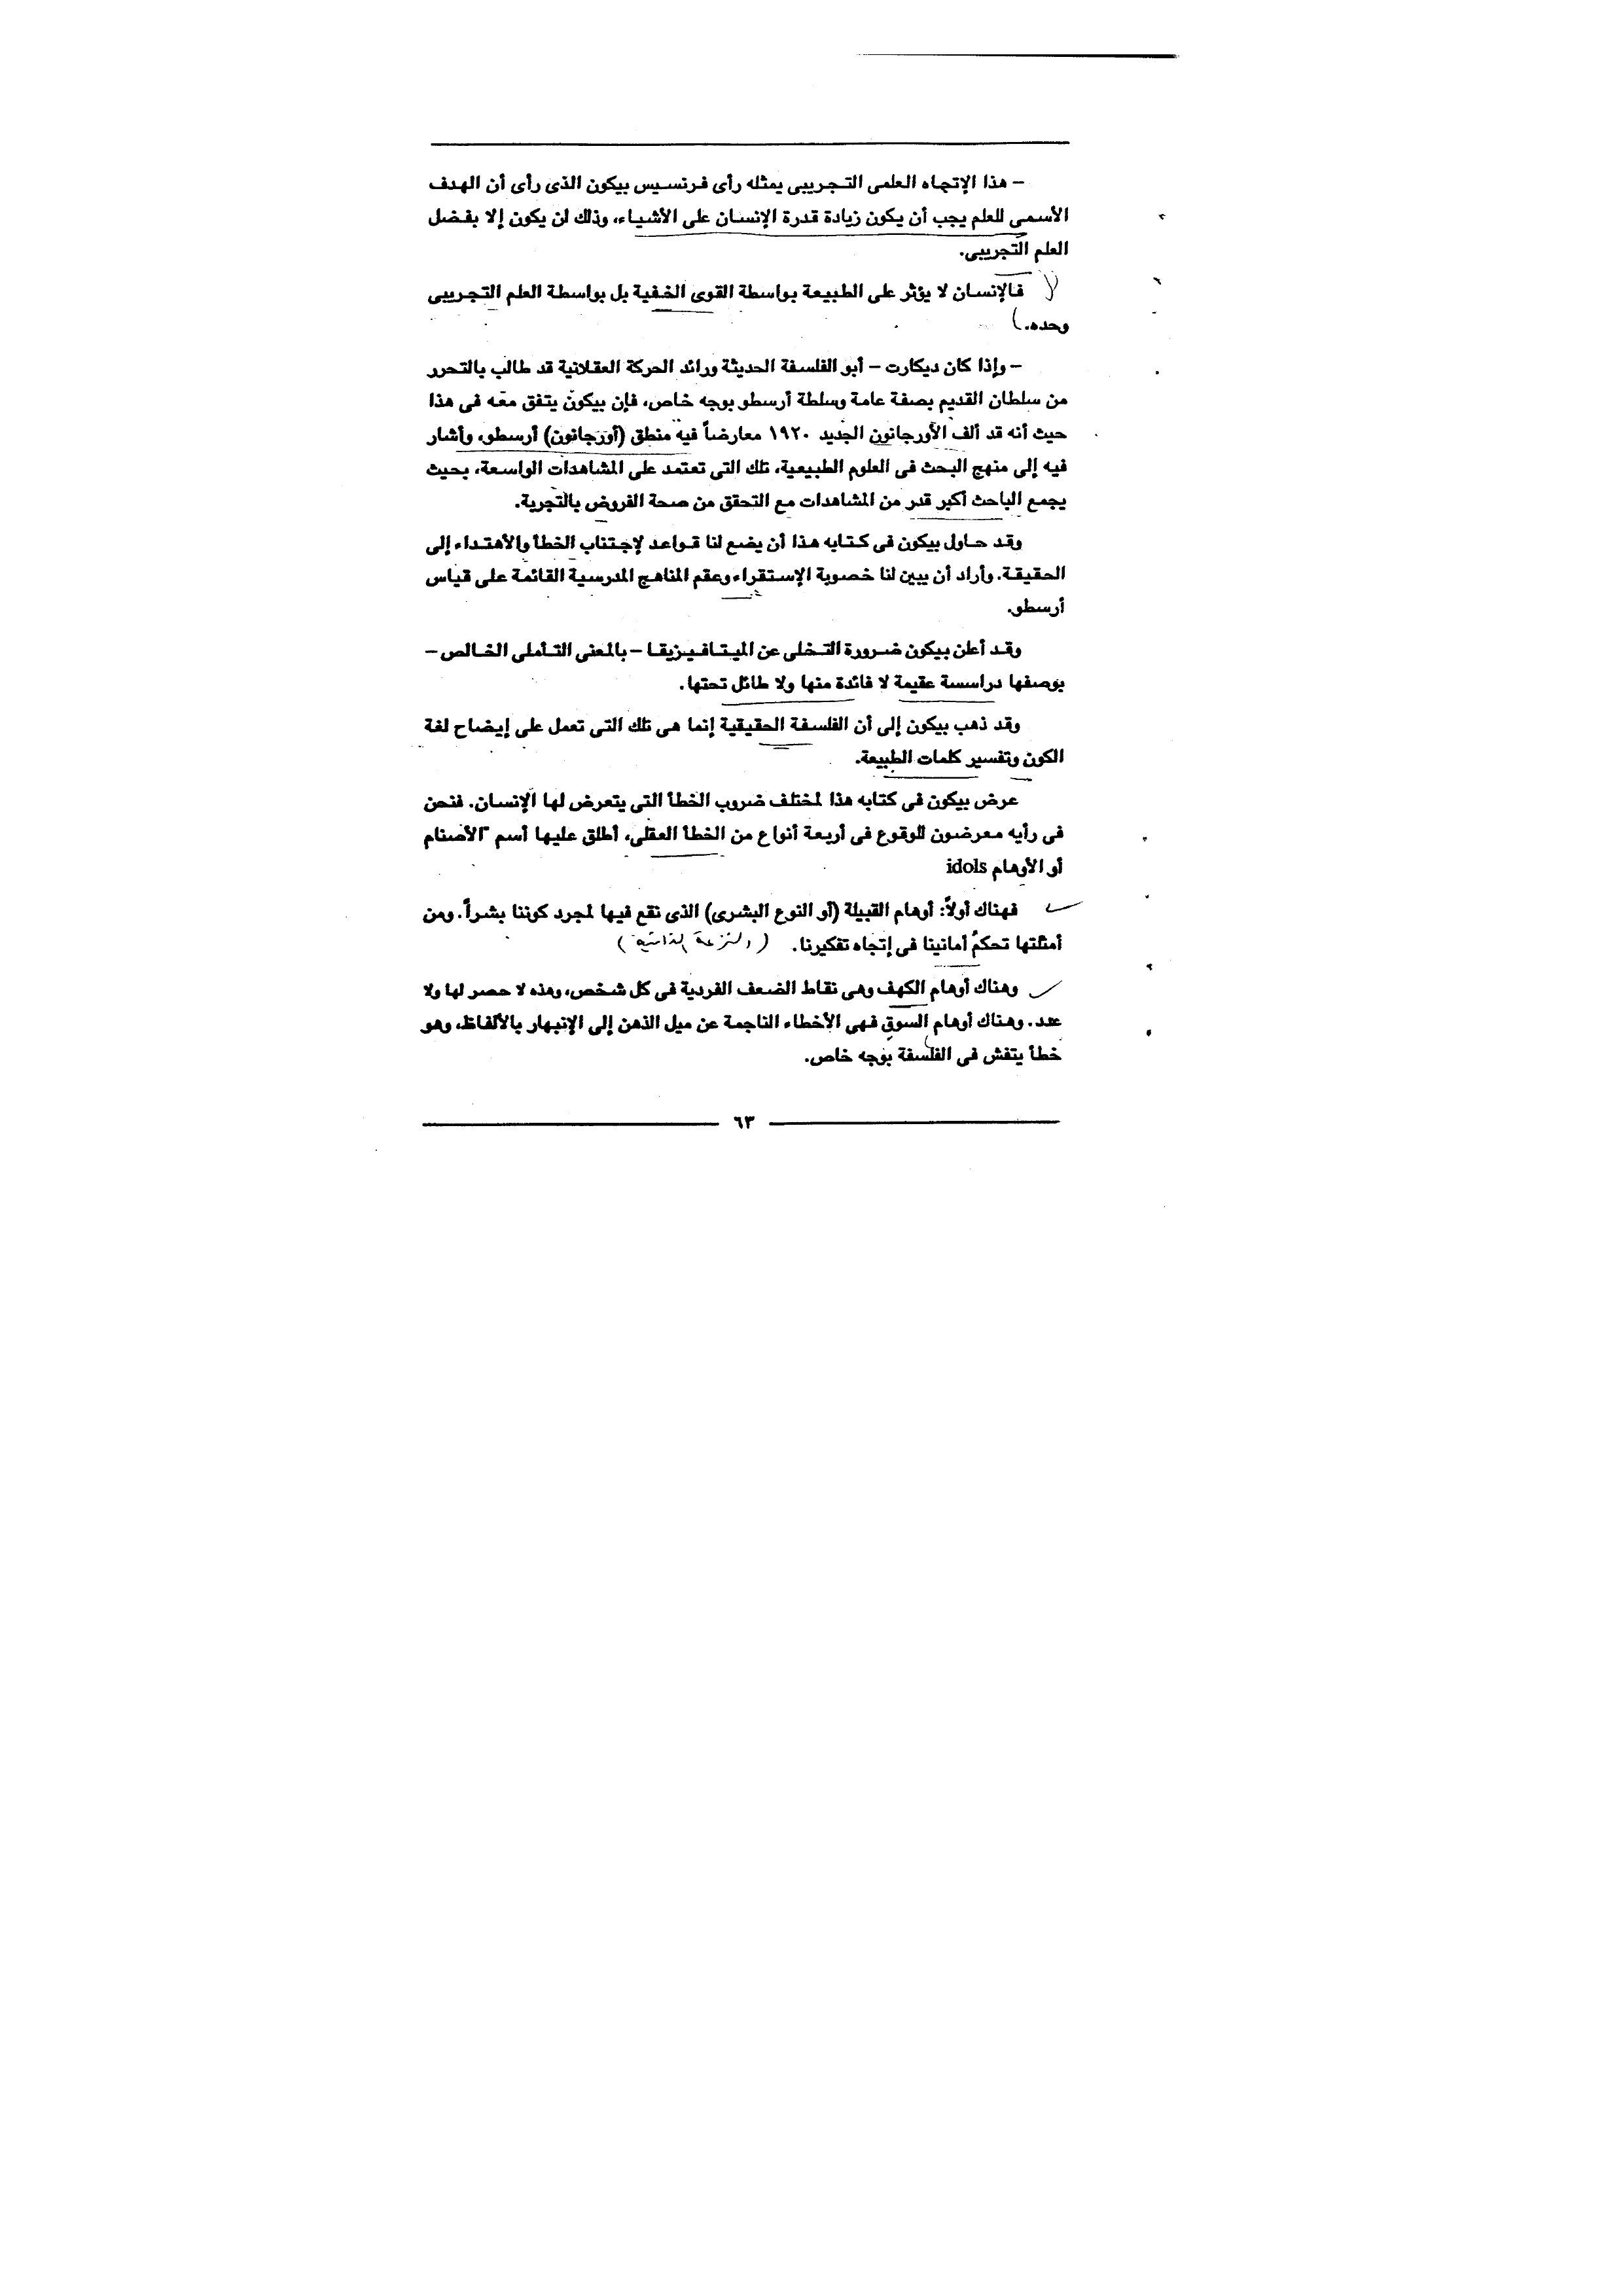 – هذا الإتجاه العلمى التجريبى يمثله رأى فرنسيس بيكون الذى رأى أن الهدف
الأسمى للعلم يجب أن يكون زيادة قدرة الإنسان على الأشياء، وذلك لن يكون إلا بفضل
العلم التجريبى.
فالإنسان لا يؤثر على الطبيعة بواسطة القوى الخفية بل بواسطة العلم التجريبى
وحده.)
– وإذا كان ديكارت – أبو الفلسفة الحديثة ورائد الحركة العقلانية قد طالب بالتحرر
من سلطان القديم بصفة عامة وسلطة أرسطو بوجه خاص، فإن بيكون يتفق معه فى هذا
حيث أنه قد ألف الأورجانون الجديد ١٩٢٠ معارضاً فيه منطق (أورجانون) أرسطو، وأشار
فيه إلى منهج البحث فى العلوم الطبيعية، تلك التى تعتمد على المشاهدات الواسعة، بحيث
يجمع الباحث أكبر قدر من المشاهدات مع التحقق من صحة الفروض بالتجربة.
وقد حاول بيكون فى كتابه هذا أن يضع لنا قواعد لإجتناب الخطأ والأهتداء إلى
الحقيقة. وأراد أن يبين لنا خصوبة الإستقراء وعقم المناهج المدرسية القائمة على قياس
أرسطو.
وقد أعلن بيكون ضرورة التخلى عن الميتافيزيقا – بالمعنى التأملى الخالص –
بوصفها دراسسة عقيمة لا فائدة منها ولا طائل تحتها.
وقد ذهب بيكون إلى أن الفلسفة الحقيقية إنما هى تلك التى تعمل على إيضاح لغة
الكون وتفسير كلمات الطبيعة.
عرض بيكون فى كتابه هذا لمختلف ضروب الخطأ التى يتعرض لها الإنسان. فنحن
فى رأيه معرضون للوقوع فى أربعة أنواع من الخطأ العقلى، أطلق عليها أسم "الأصنام
أو الأوهام idols
فهناك أولاً: أوهام القبيلة (أو النوع البشرى) الذى نقع فيها لمجرد كوننا بشراً. ومن
أمثلتها تحكم أمانينا فى إتجاه تفكيرنا. (النزعة الذاتية)
وهناك أوهام الكهف وهى نقاط الضعف الفردية فى كل شخص، وهذه لا حصر لها ولا
عدد. وهناك أوهام السوق فهى الأخطاء الناجمة عن ميل الذهن إلى الإنبهار بالألفاظ، وهو
خطأ يتفش فى الفلسفة بوجه خاص.
٦٣